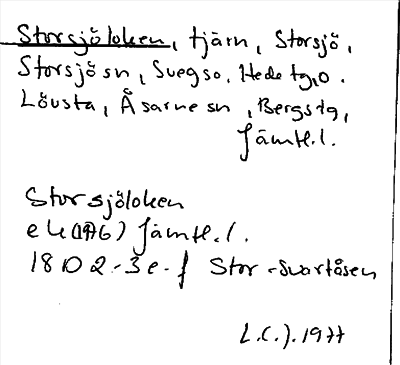 Storsjöloken, tjärn, Storsjö,
Storsjö sn, Svegs o. Hede tg, o.
Lövsta, Åsarne sn, Bergs tg,
Jämtl. l.
Storsjöloken
ek (1976) Jämtl. l.
18D 2-3 e-f Stor-Svartåsen
L.C.J. 1977